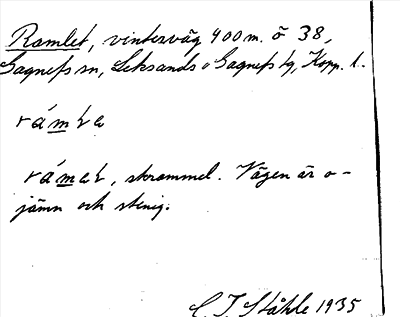 Ramlet, vinterväg 400 m. ö 38,
Gagnefs sn, Leksands o Gagnefs tg, Kopp. l.
rámta
rámat, skrammel. Vägen är o-
jämn och stenig.
C. I. Ståhle 1935